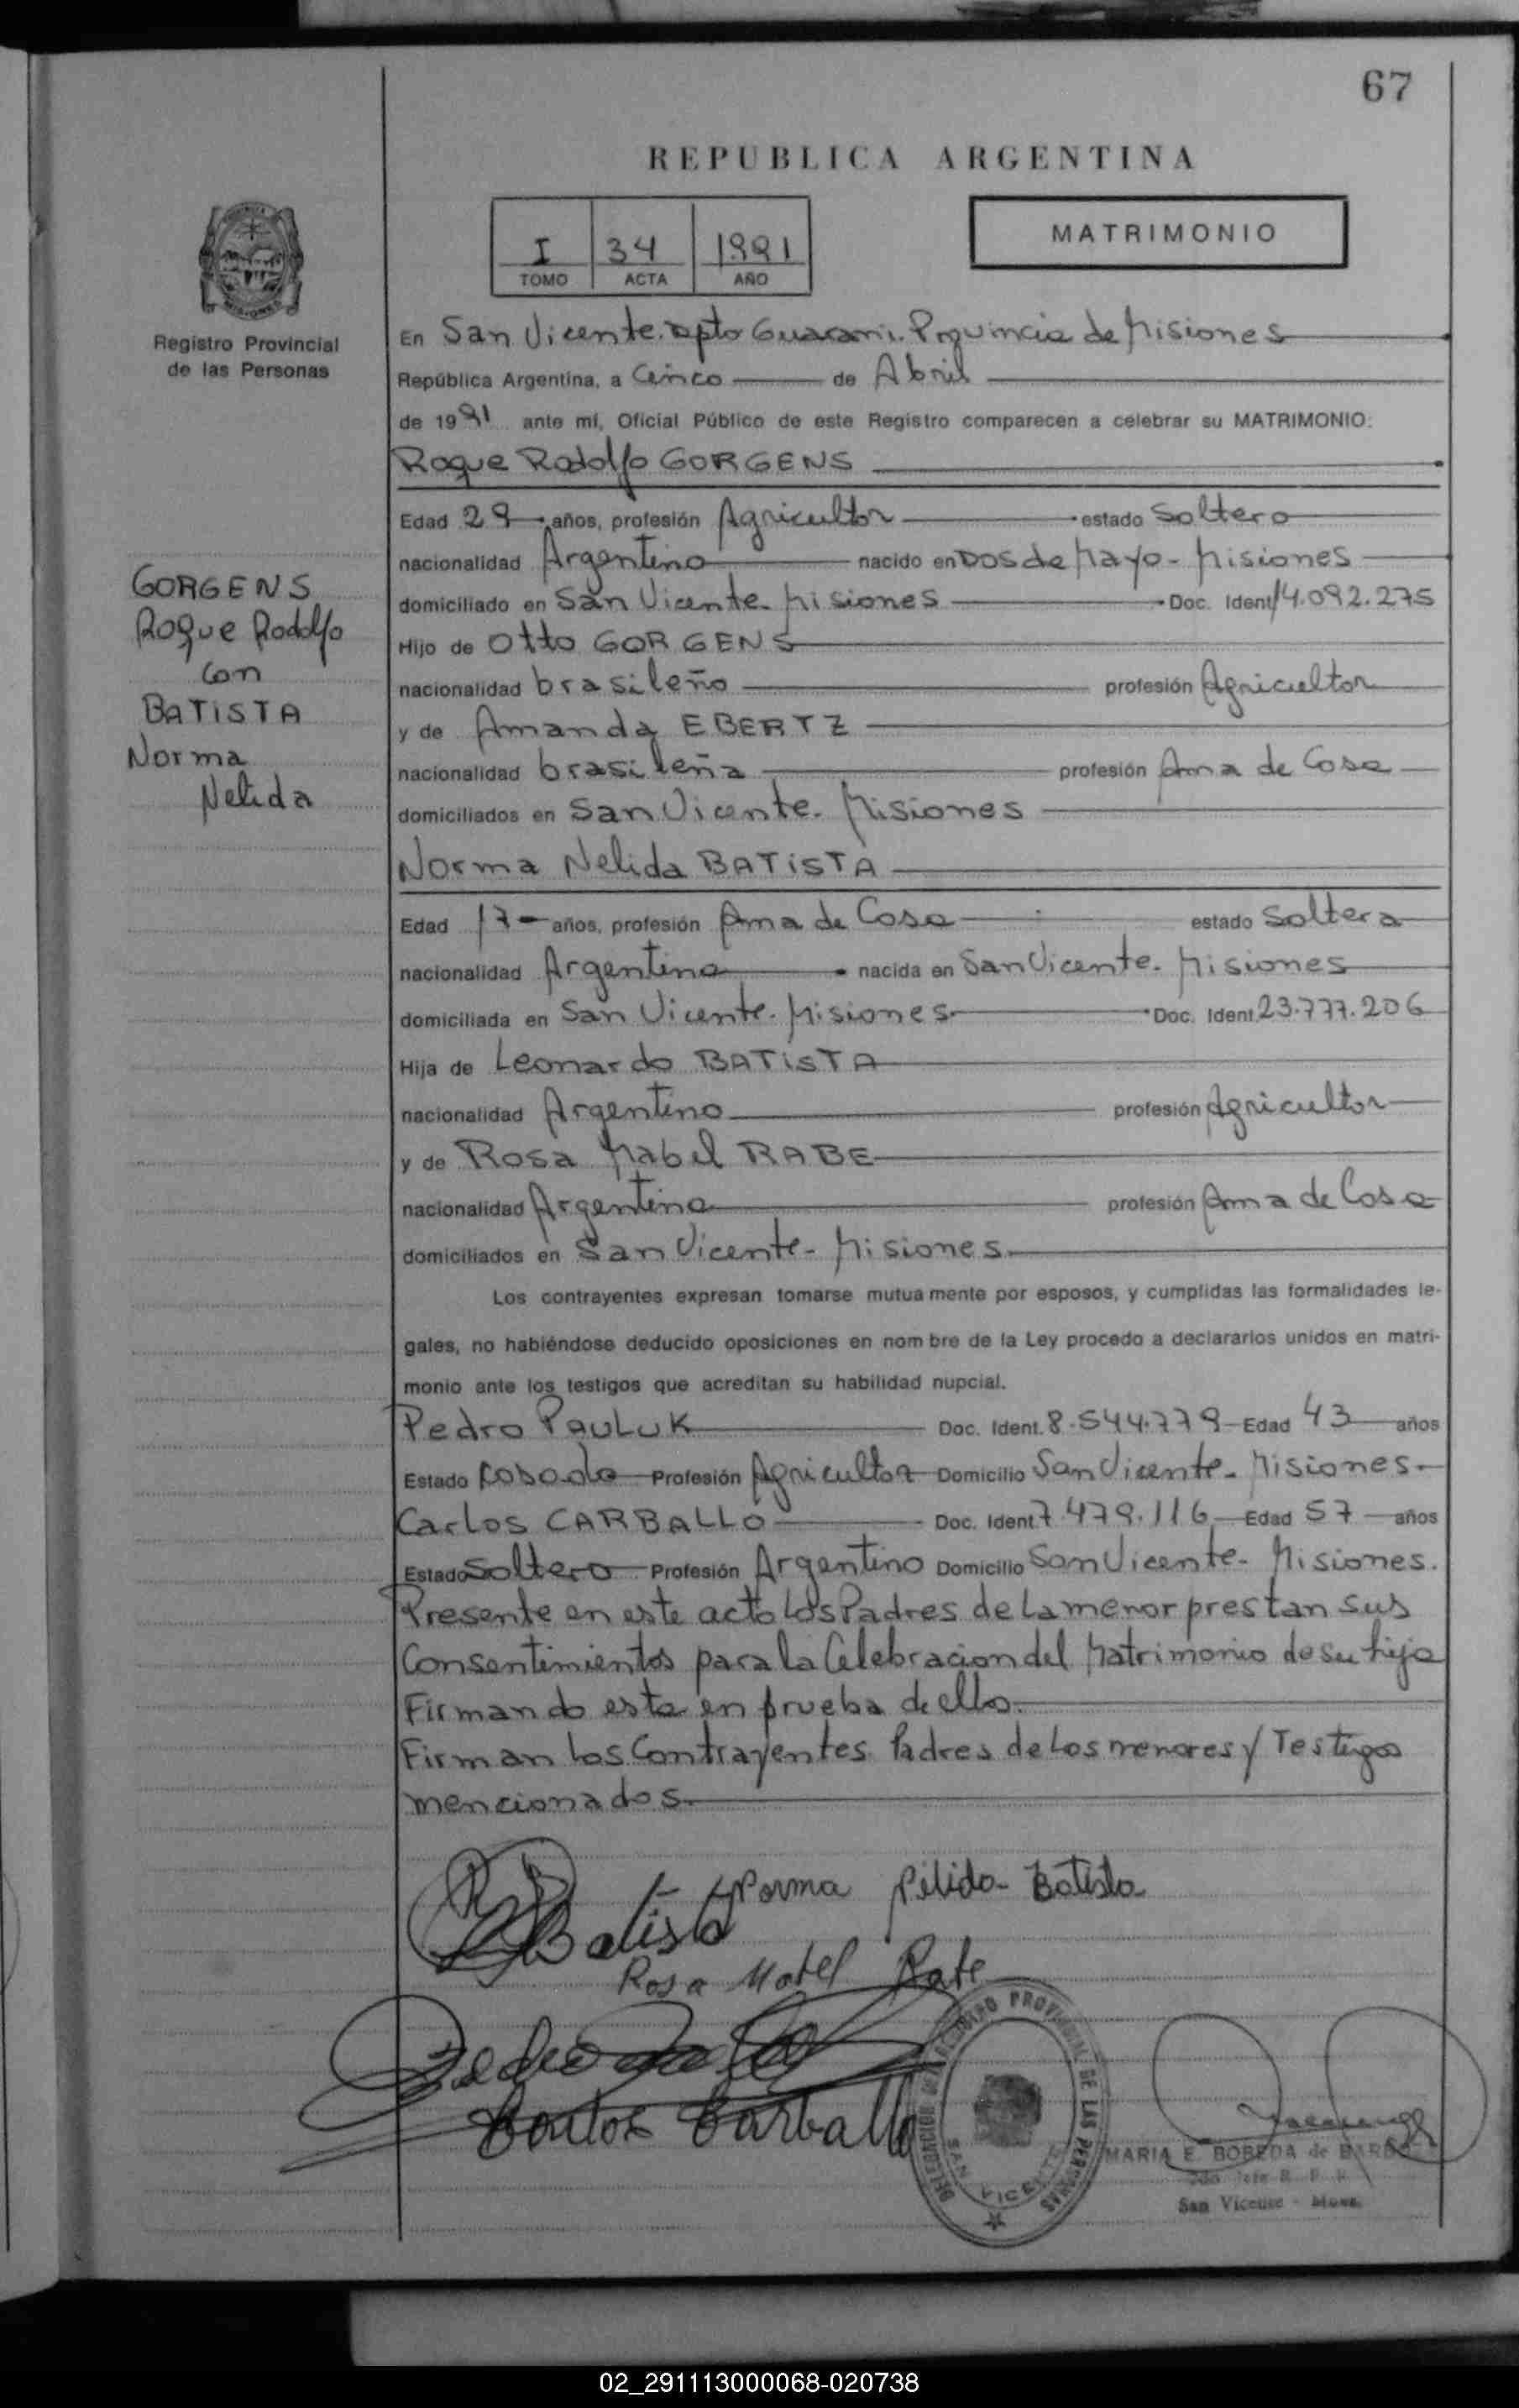 67
REPUBLICA ARGENTINA
I 34 1991
TOMO ACTA AÑO
MATRIMONIO
Registro Provincial
de las Personas
GORGENS
Roque Rodolfo
con
BATISTA
Norma
Nelida
En San Vicente. Dpto Guarani. Provincia de Misiones
República Argentina, a Cinco de Abril
de 1991 ante mí, Oficial Público de este Registro comparecen a celebrar su MATRIMONIO:
Roque Rodolfo GORGENS
Edad 29 años, profesión Agricultor estado Soltero
nacionalidad Argentino nacido en Dos de Mayo - Misiones
domiciliado en San Vicente. Misiones Doc. Ident. 14.092.275
Hijo de Otto GORGENS
nacionalidad brasileño profesión Agricultor
y de Amanda EBERTZ
nacionalidad brasileña profesión Ama de Casa
domiciliados en San Vicente. Misiones
Norma Nelida BATISTA
Edad 17 años, profesión Ama de Casa estado Soltera
nacionalidad Argentina nacida en San Vicente. Misiones
domiciliada en San Vicente. Misiones Doc. Ident. 23.777.206
Hija de Leonardo BATISTA
nacionalidad Argentino profesión Agricultor
y de Rosa Mabel RABE
nacionalidad Argentina profesión Ama de Casa
domiciliados en San Vicente - Misiones
Los contrayentes expresan tomarse mutua mente por esposos, y cumplidas las formalidades le-
gales, no habiéndose deducido oposiciones en nom bre de la Ley procedo a declararlos unidos en matri-
monio ante los testigos que acreditan su habilidad nupcial.
Pedro PAULUK Doc. Ident. 8.544.779 Edad 43 años
Estado Casado Profesión Agricultor Domicilio San Vicente - Misiones
Carlos CARBALLO Doc. Ident. 7.479.116 Edad 57 años
Estado Soltero Profesión Argentino Domicilio San Vicente - Misiones.
Presente en este acto los Padres de La menor prestan sus
Consentimientos para la Celebracion del Matrimonio de su hija
Firmando esta en prueba de ello.
Firman los Contrayentes Padres de Los menores y Testigos
mencionados.
Norma Nélida Batista
Batista
Rosa Mabel Rabe
Pedro
Carlos Carballo
DELEGACION DEL REGISTRO PROVINCIAL DE LAS PERSONAS
SAN VICENTE
MARIA E. BOBEDA de
San Vicente - Mnes.
02_291113000068-020738